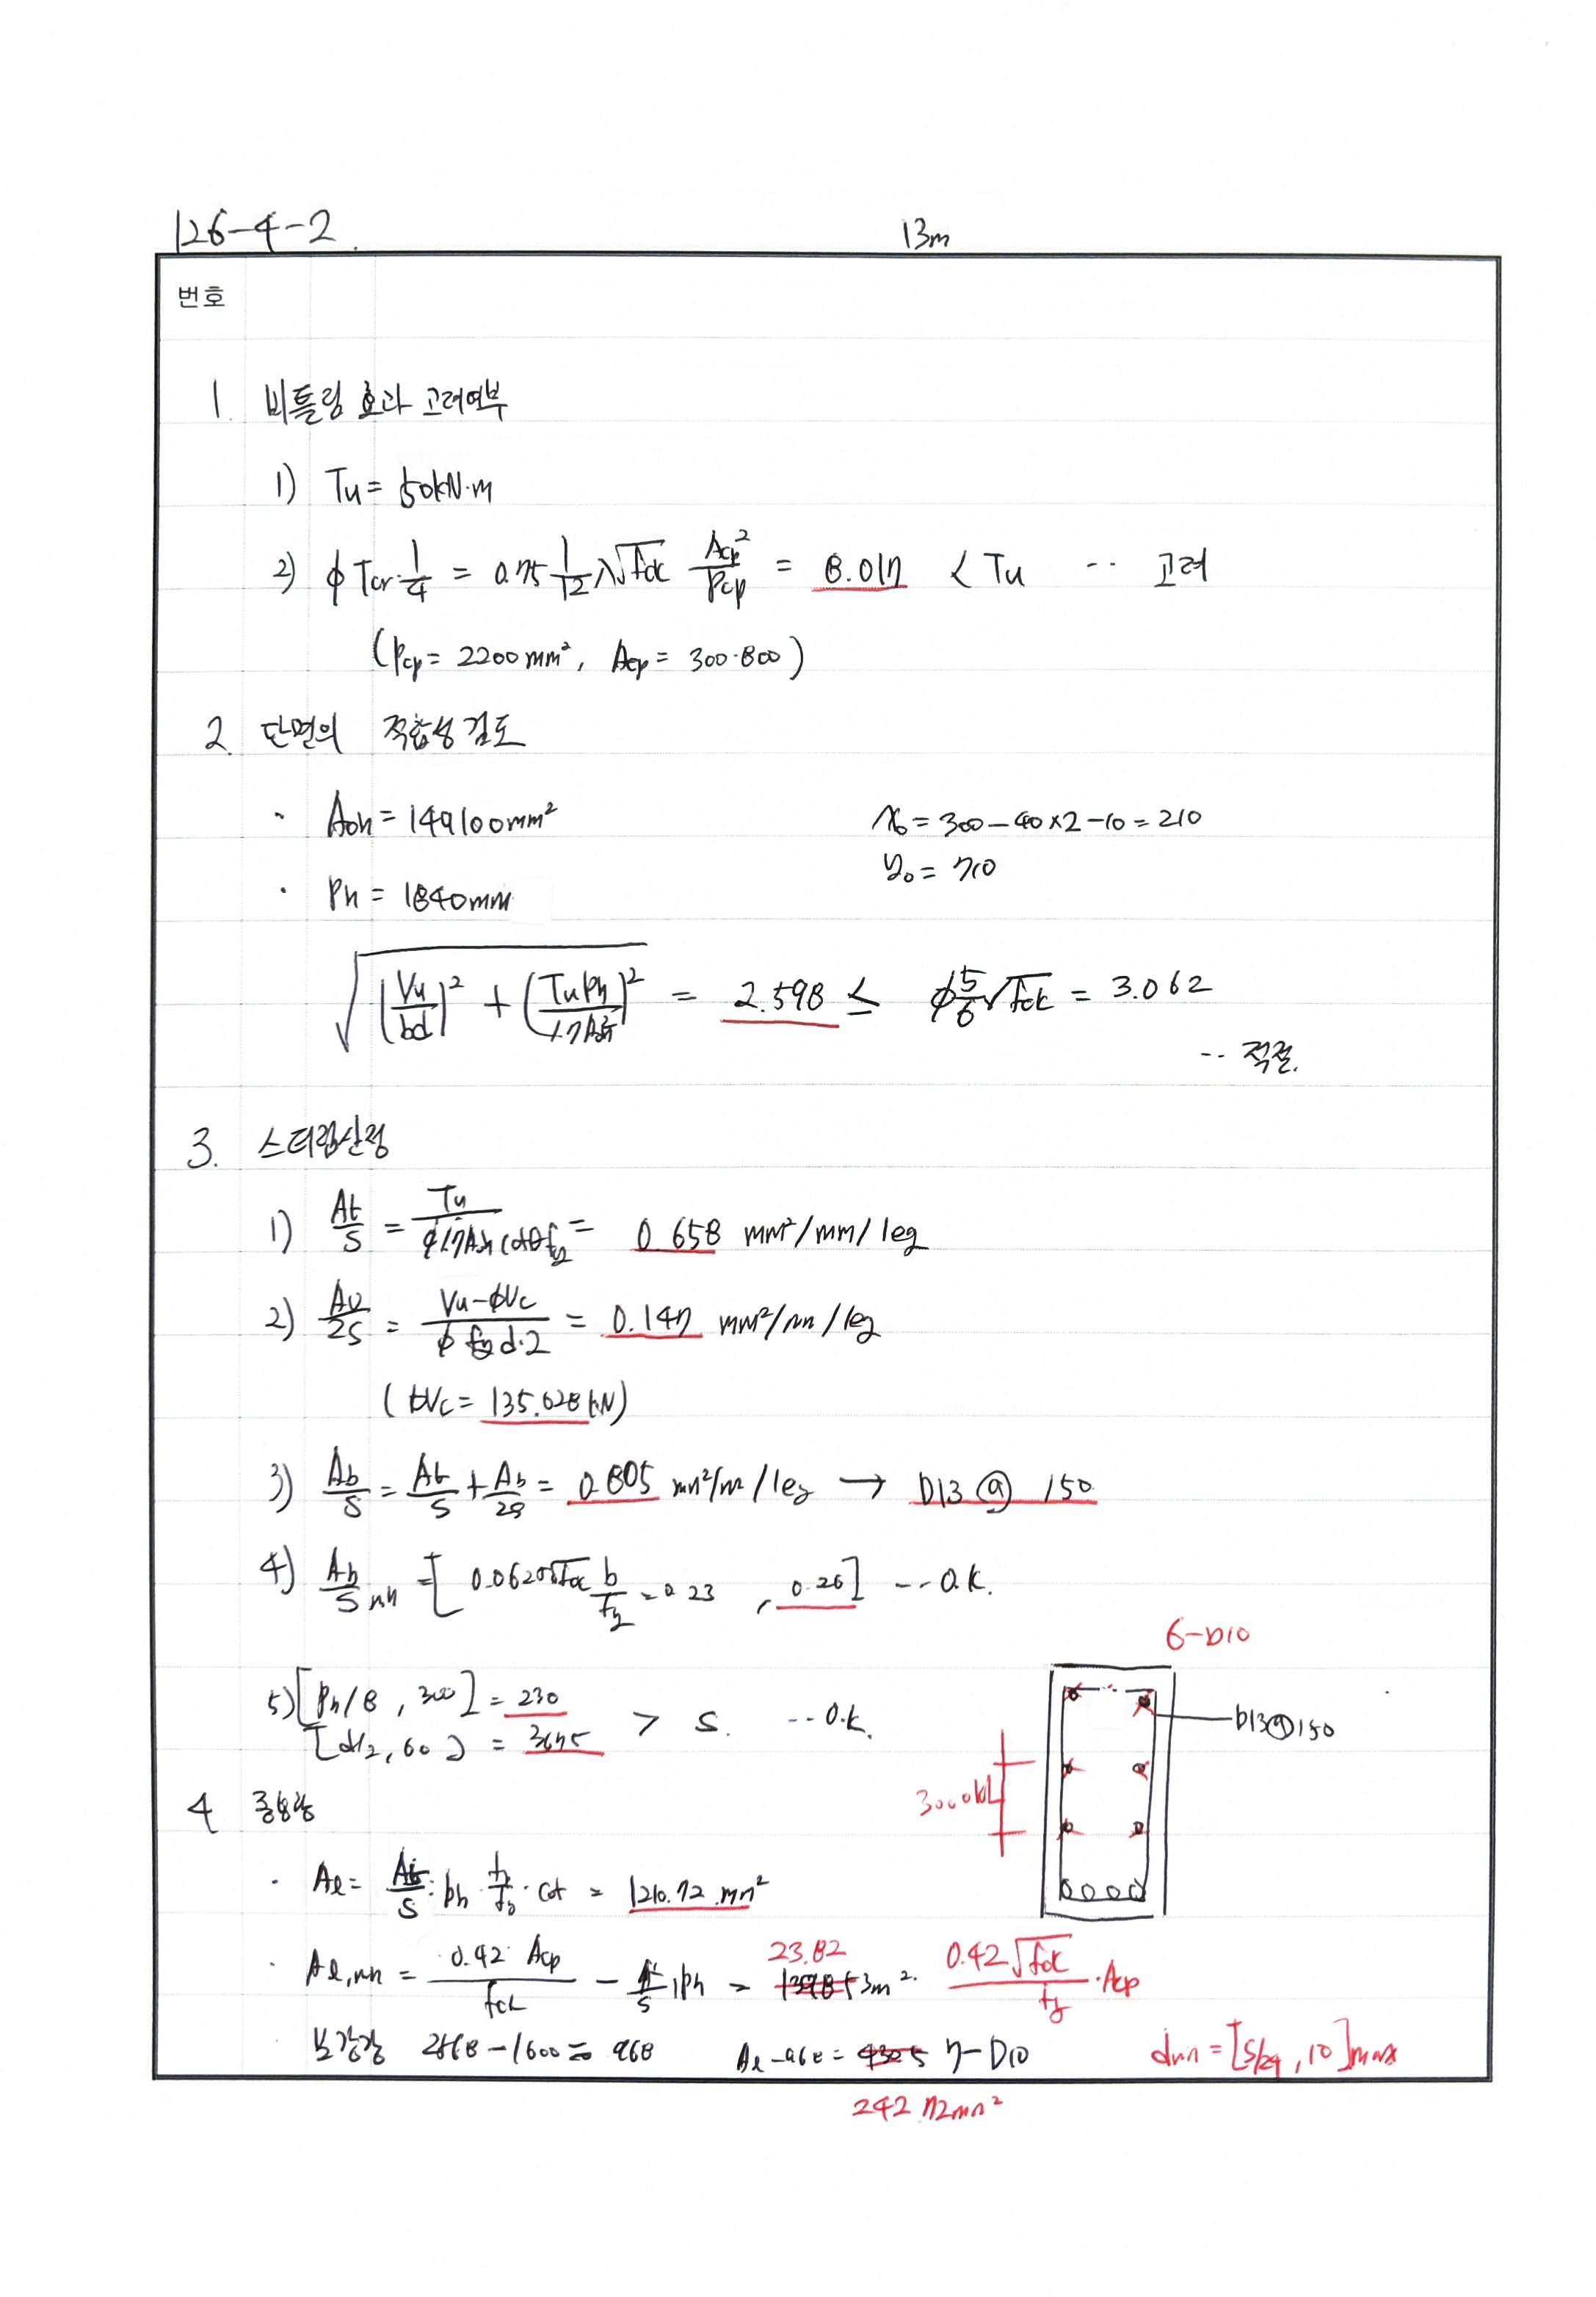 126-4-2.
13m
번호
1. 비틀림 효과 고려여부
1) Tu = 50kN·m
2) φTcr·1/4 = 0.75 1/12 λ√fck Acp²/Pcp = 8.017 < Tu ·· 고려
(Pcp = 2200mm², Acp = 300·800)
2. 단면의 적합성 검토
· Aoh = 149100mm²
x₀ = 300-40×2-10 = 210
y₀ = 710
· Ph = 1840mm
√((Vu/bd)² + (TuPh/1.7Aoh²)²) = 2.598 ≤ φ5/6√fck = 3.062
·· 적절.
3. 스터럽산정
1) At/s = Tu/φ1.7Aoh cotθfy = 0.658 mm²/mm/leg
2) Av/2s = Vu-φVc/φ fy d·2 = 0.147 mm²/mm/leg
(φVc = 135.628kN)
3) Ab/s = At/s + Ab/2s = 0.805 mm²/m/leg → D13 @ 150
4) Ab/s min = [0.0625√fck b/fy = 0.23, 0.26] --- O.K.
6-D10
5) [Ph/8, 300] = 230
[d/2, 60] = 3675 > s. --- O.K.
D13@150
300이내
4 종방향
· Al = At/s · Ph · fy/fy · cot = 1210.72 mm²
· Al,min = 0.42 Acp/fck - At/s Ph = 23.82 mm². 0.42√fck/fy · Acp
보강량 2568-1600 = 968 Al-968 = 7-D10 dmin = [s/24, 10]max
242.72mm²